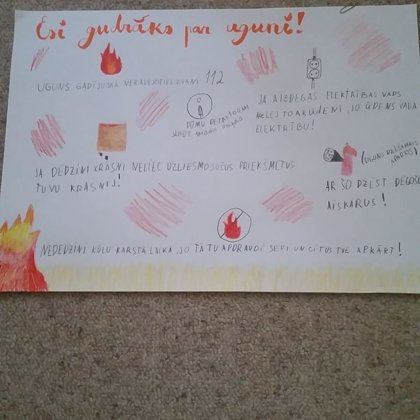 Esi gudrāks par uguni!
UGUNS GADĪJUMĀ NEKAVĒJOTIES ZVANI 112
DŪMU DETEKTORI
JA AIZDEGAS ELEKTRĪBAS VADS
NELEJ TO AR ŪDENI, JO ŪDENS VADA
ELEKTRĪBU!
JA DEDZINI KRĀSNI NELIEC UZLIESMOJOŠUS PRIEKŠMETUS
TUVU KRĀSNIJ!
(UGUNS DZĒŠAMAIS
APARĀTS)
AR ŠO DZĒST DEGOŠUS
AIZKARUS!
NEDEDZINI KŪLU KARSTĀ LAIKĀ, JO TĀ TU APDRAUDI SEVI UN CITUS TEV APKĀRT!